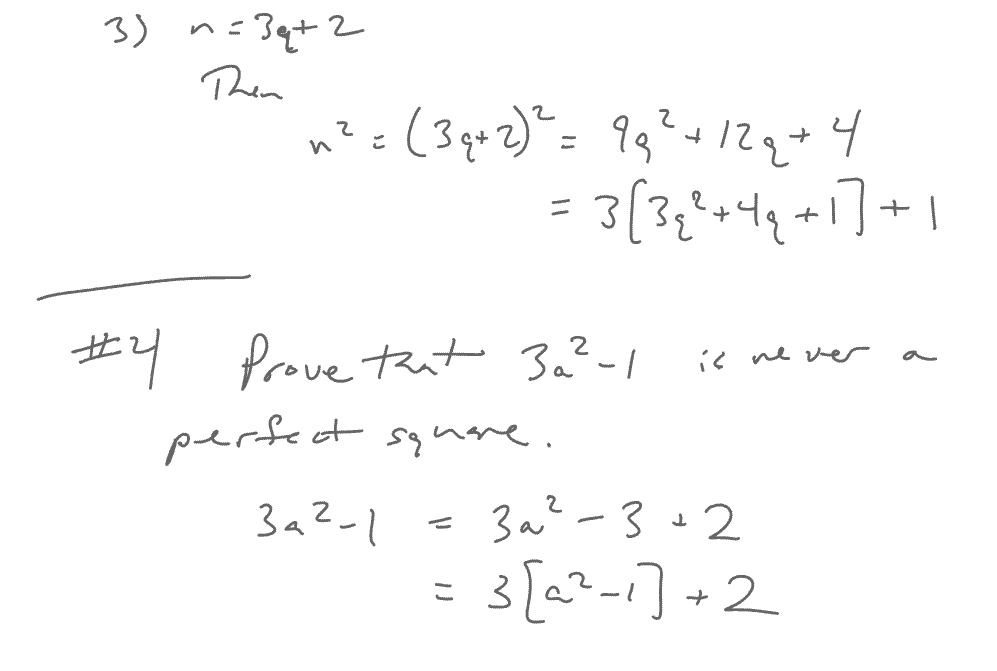 3) n = 3q + 2
Then
n² = (3q+2)² = 9q² + 12q + 4
= 3[3q² + 4q + 1] + 1
#4 Prove that 3a² - 1 is never a
perfect square.
3a² - 1 = 3a² - 3 + 2
= 3[a² - 1] + 2